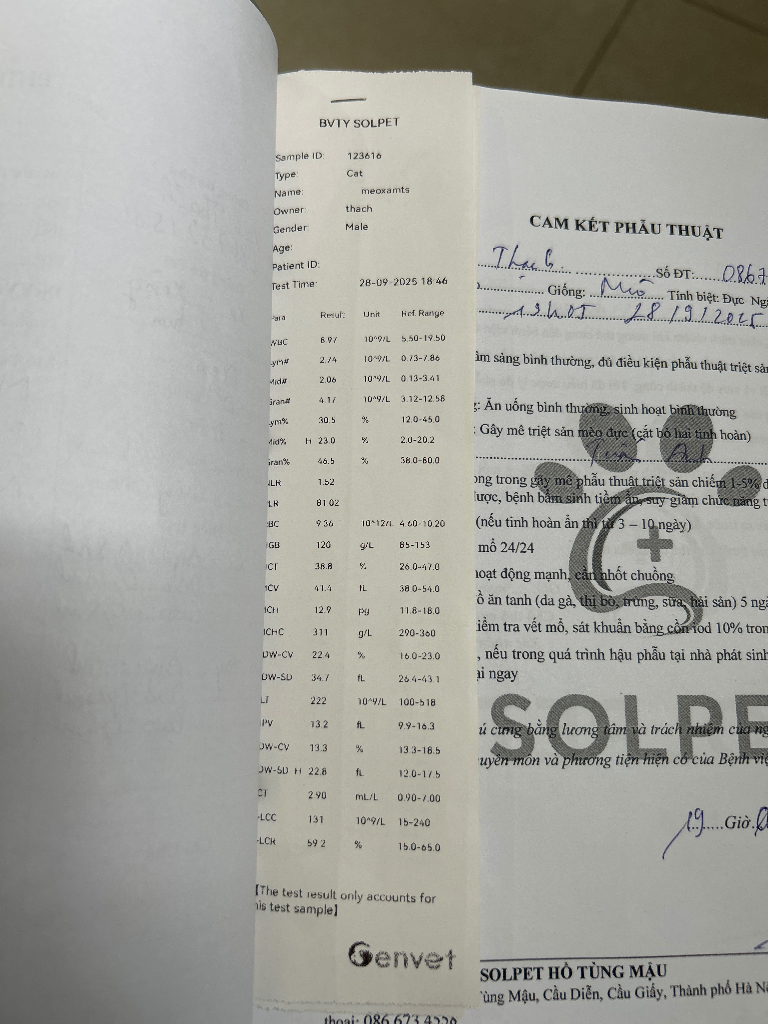 BVTY SOLPET
Sample ID: 123616
Type: Cat
Name: meoxamts
Owner: thach
Gender: Male
Age:
Patient ID:
Test Time: 28-09-2025 18:46
Para Result Unit Ref. Range
WBC 8.97 10^9/L 5.50-19.50
Lym# 2.74 10^9/L 0.73-7.86
Mid# 2.06 10^9/L 0.13-3.41
Gran# 4.17 10^9/L 3.12-12.58
Lym% 30.5 % 12.0-45.0
Mid% H 23.0 % 2.0-20.2
Gran% 46.5 % 38.0-80.0
NLR 1.52
LR 81.02
BC 9.36 10^12/L 4.60-10.20
GB 120 g/L 85-153
CT 38.8 % 26.0-47.0
CV 41.4 fL 38.0-54.0
CH 12.9 pg 11.8-18.0
CHC 311 g/L 290-360
DW-CV 22.4 % 16.0-23.0
DW-SD 34.7 fL 26.4-43.1
LT 222 10^9/L 100-518
PV 13.2 fL 9.9-16.3
DW-CV 13.3 % 13.3-18.5
DW-SD H 22.8 fL 12.0-17.5
CT 2.90 mL/L 0.90-7.00
-LCC 131 10^9/L 15-240
-LCR 59.2 % 15.0-65.0
[The test result only accounts for
his test sample]
Genvet
CAM KẾT PHẪU THUẬT
Thạch Số ĐT: 0867
Giống: Tính biệt: Đực
19h05 28/9/2025
âm sàng bình thường, đủ điều kiện phẫu thuật triệt sản
: Ăn uống bình thường, sinh hoạt bình thường
: Gây mê triệt sản mèo đực (cắt bỏ hai tinh hoàn)
ong trong gây mê phẫu thuật triệt sản chiếm 1-5%
lược, bệnh bẩm sinh tiềm ẩn, suy giảm chức năng
(nếu tinh hoàn ẩn thì từ 3 – 10 ngày)
mổ 24/24
hoạt động mạnh, cần nhốt chuồng
ồ ăn tanh (da gà, thị bò, trứng, sữa, hải sản) 5 ngà
iểm tra vết mổ, sát khuẩn bằng cồn iod 10% tron
, nếu trong quá trình hậu phẫu tại nhà phát sinh
ại ngay
SOLPE
ú cưng bằng lương tâm và trách nhiệm của ng
uyên môn và phương tiện hiện có của Bệnh việ
19 Giờ
SOLPET HỒ TÙNG MẬU
Tùng Mậu, Cầu Diễn, Cầu Giấy, Thành phố Hà Nộ
thoại: 086.673.4556